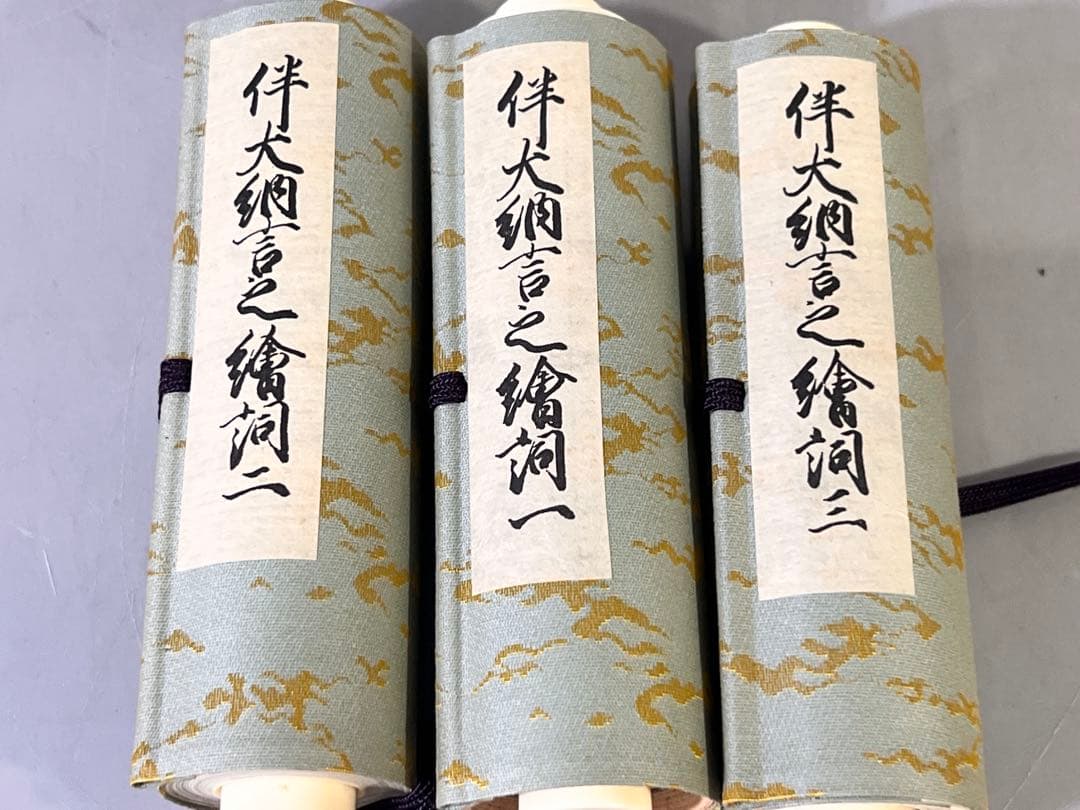 伴大納言之繪詞二
伴大納言之繪詞一
伴大納言之繪詞三